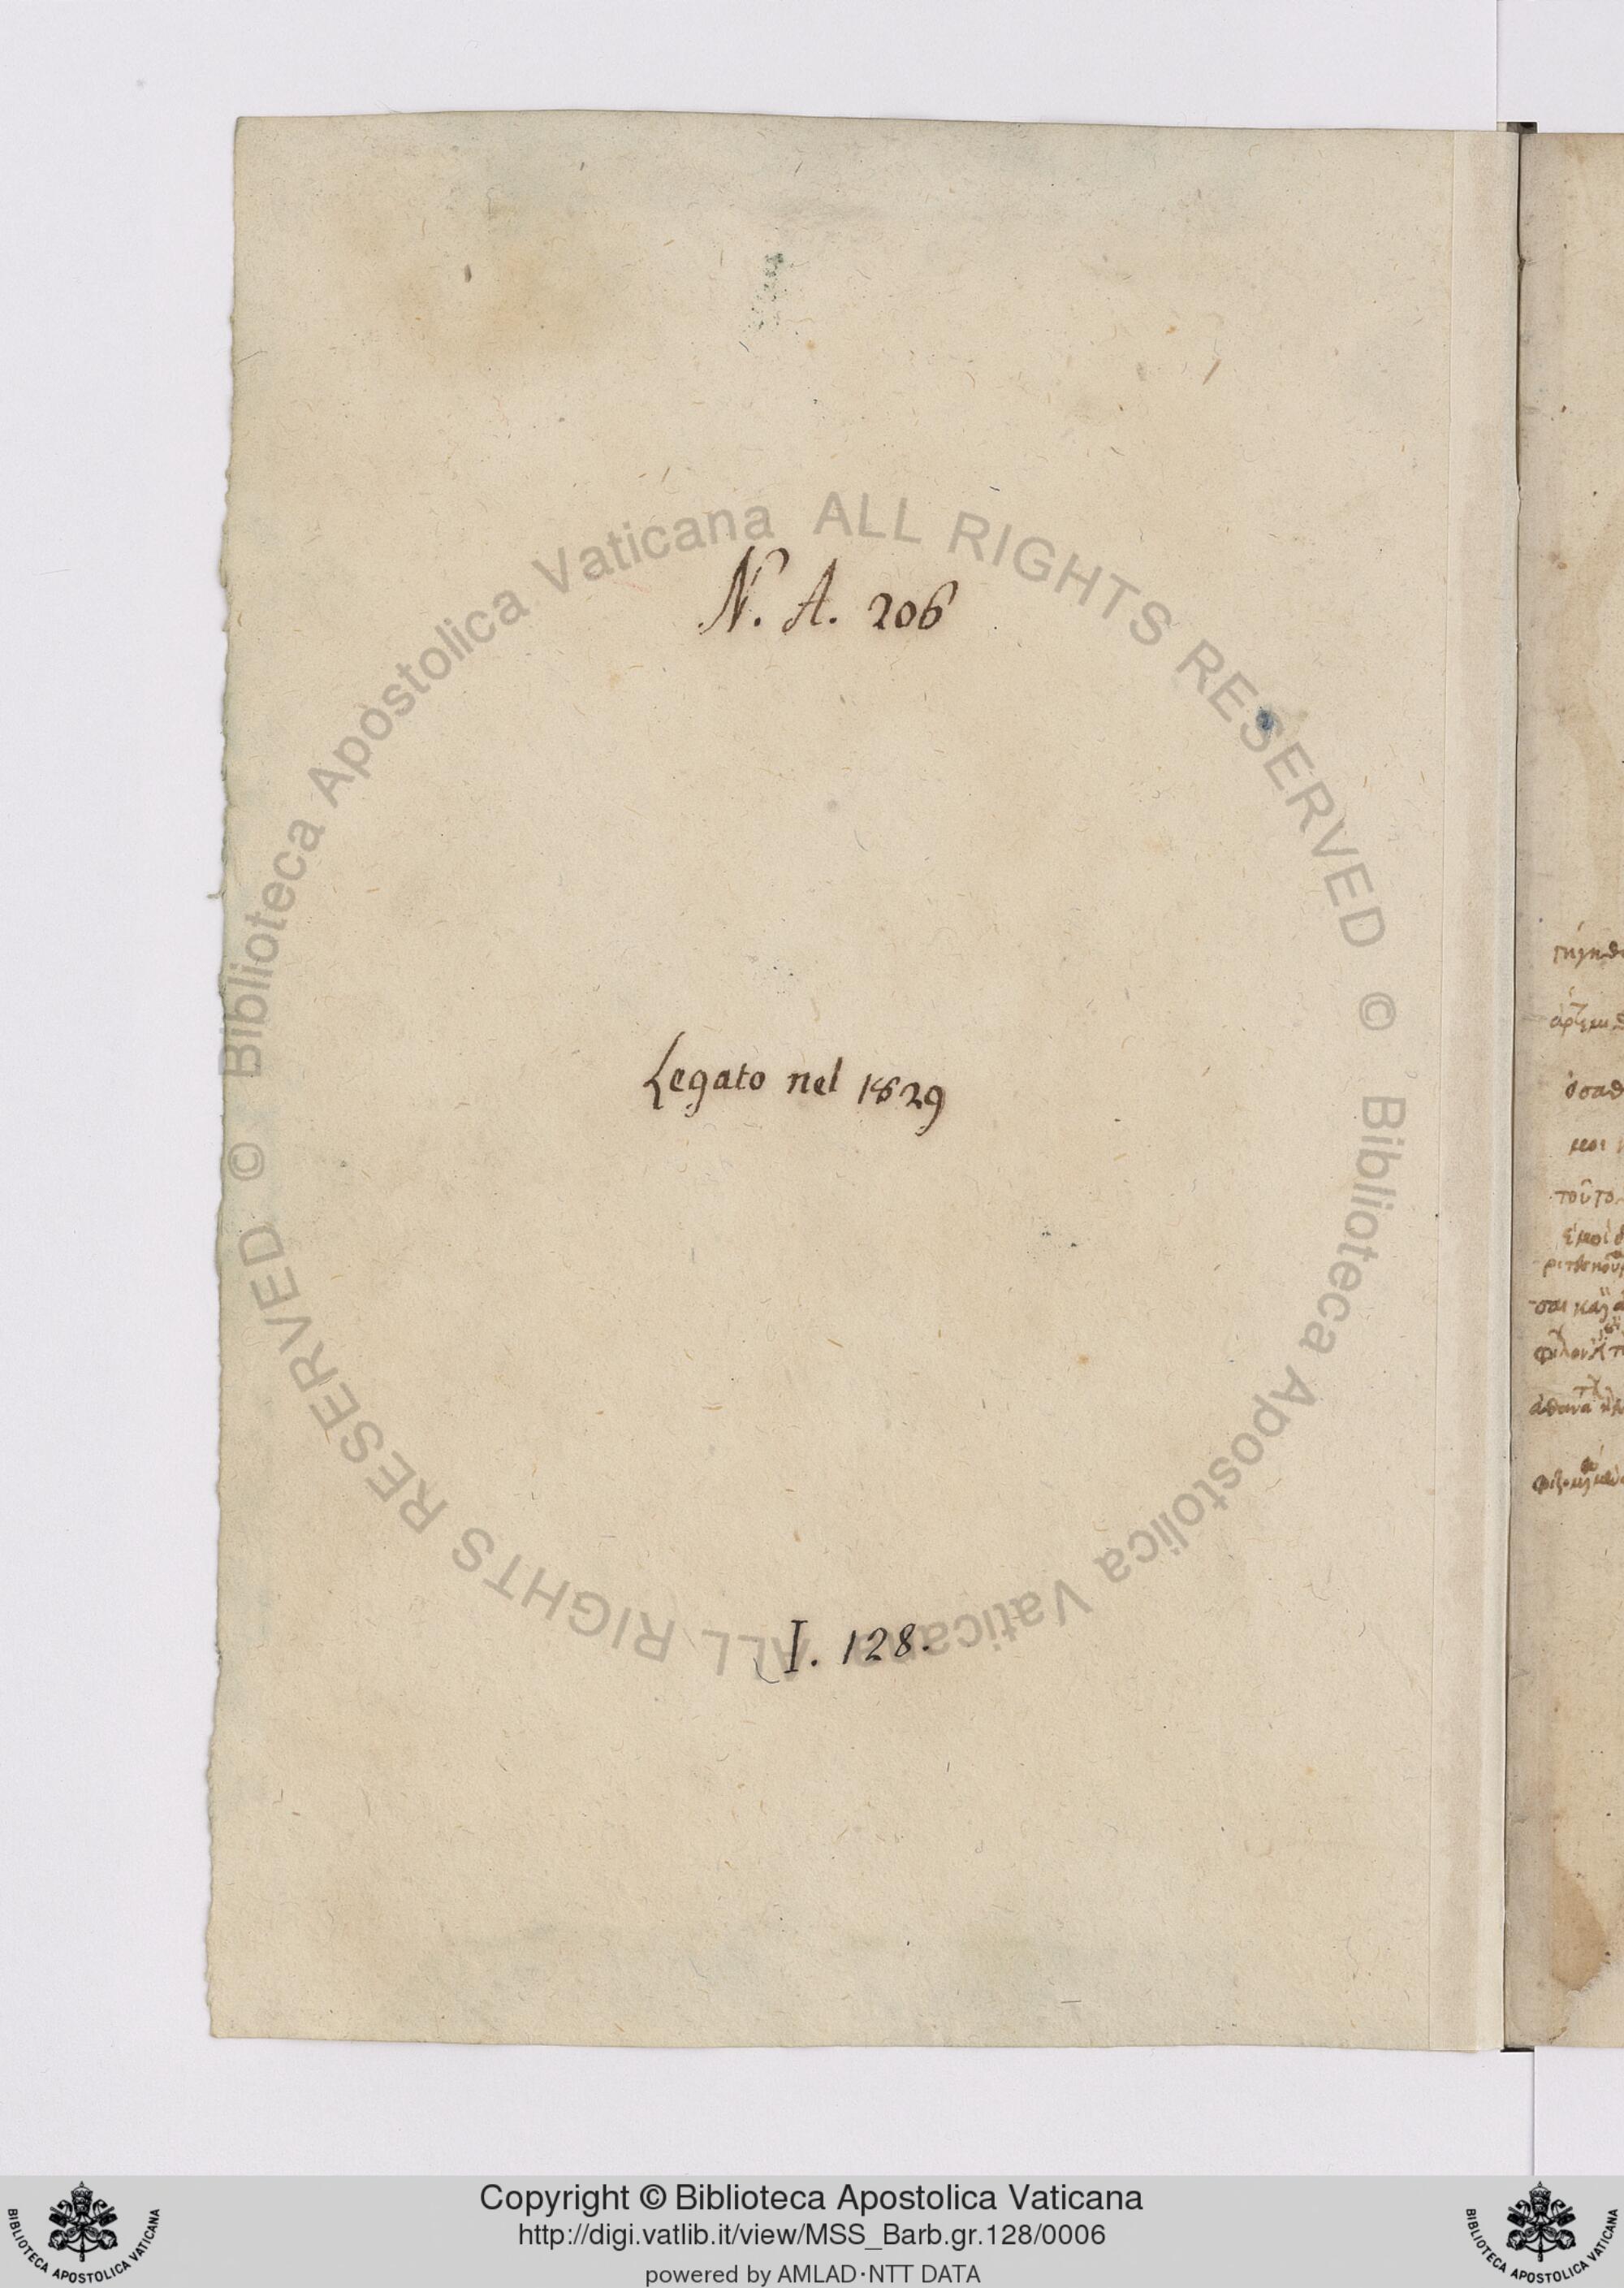 N. A. 206
Legato nel 1829
I. 128.
© Biblioteca Apostolica Vaticana ALL RIGHTS RESERVED
© Biblioteca Apostolica Vaticana ALL RIGHTS RESERVED
Copyright © Biblioteca Apostolica Vaticana
http://digi.vatlib.it/view/MSS_Barb.gr.128/0006
powered by AMLAD·NTT DATA
BIBLIOTECA APOSTOLICA VATICANA
BIBLIOTECA APOSTOLICA VATICANA